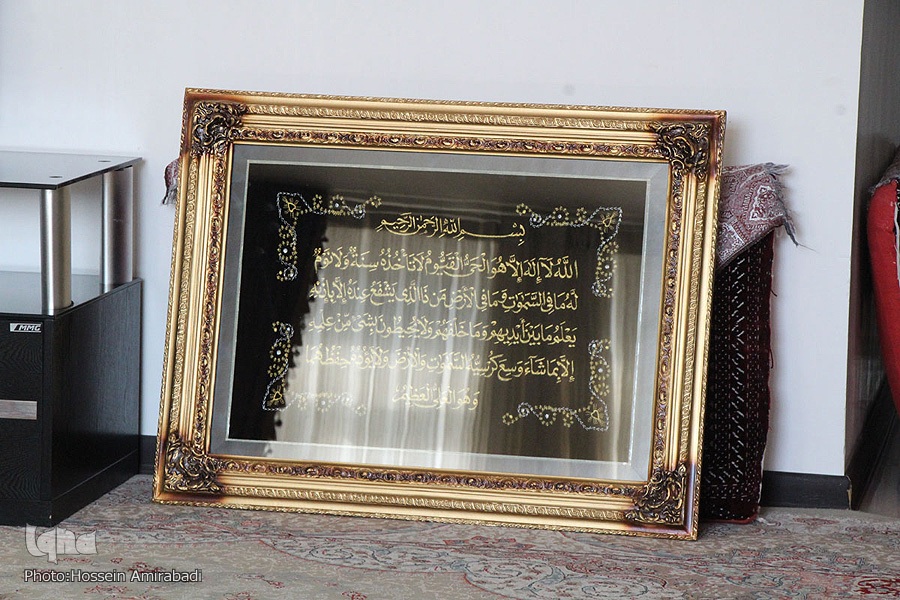 بِسْمِ اللهِ الرَّحْمٰنِ الرَّحِيمِ
اللهُ لَا إِلَهَ إِلَّا هُوَ الْحَيُّ الْقَيُّومُ لَا تَأْخُذُهُ سِنَةٌ وَلَا نَوْمٌ
لَهُ مَا فِي السَّمٰوَاتِ وَمَا فِي الْأَرْضِ مَنْ ذَا الَّذِي يَشْفَعُ عِنْدَهُ إِلَّا بِإِذْنِهِ
يَعْلَمُ مَا بَيْنَ أَيْدِيهِمْ وَمَا خَلْفَهُمْ وَلَا يُحِيطُونَ بِشَيْءٍ مِنْ عِلْمِهِ
إِلَّا بِمَا شَاءَ وَسِعَ كُرْسِيُّهُ السَّمٰوَاتِ وَالْأَرْضَ وَلَا يَؤُدُهُ حِفْظُهُمَا
وَهُوَ الْعَلِيُّ الْعَظِيمُ
MMG
iqna
Photo:Hossein Amirabadi